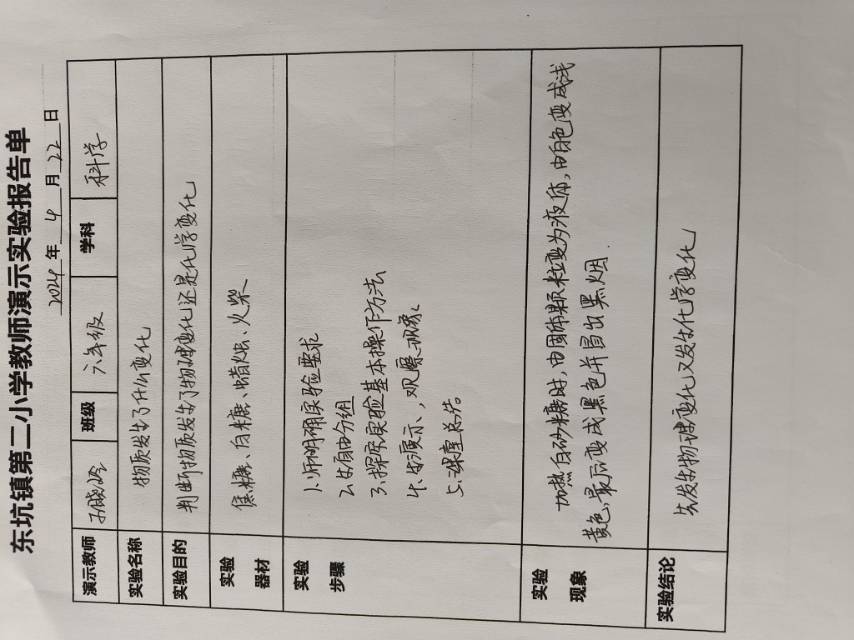 东坑镇第二小学教师演示实验报告单
2024年 4 月 22 日
演示教师 班级 六年级 学科 科学
实验名称 物质发生了什么变化
实验目的 判断物质发生了物理变化还是化学变化
实验器材 白糖、蜡烛、火柴
实验步骤
1、师明确实验要求
2、生自由分组
3、探究实验基本操作方法
4、生演示、观察现象、
5、课堂总结
实验现象
加热白砂糖时,由固体颗粒变为液体,由白色变成浅
黄色,最后变成黑色并冒出黑烟.
实验结论 先发生物理变化又发生化学变化